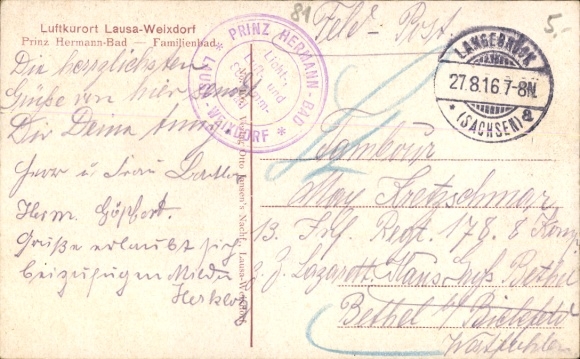 Luftkurort Lausa-Weixdorf
Prinz Hermann-Bad — Familienbad
Die herzlichsten
Grüße von hier sendet
Dir Deine Anny.
Herr u Frau
Herm. Göpfert.
Grüße erlaubt sich
beizufügen
* PRINZ HERMANN-BAD * LAUSA-WEIXDORF
Licht-, Luft- und
Verlag Otto Jansen's Nachf., Lausa-Weixdorf
81
5.-
Feld-Post.
LANGEBRÜCK
27.8.16.7-8N.
* (SACHSEN) a
Tambour
Max Kretzschmar
13. Inf. Regt. 178. 8 Komp.
z. Z. Lazarett Haus Bethel
Bethel b/ Bielefeld
Westfahlen